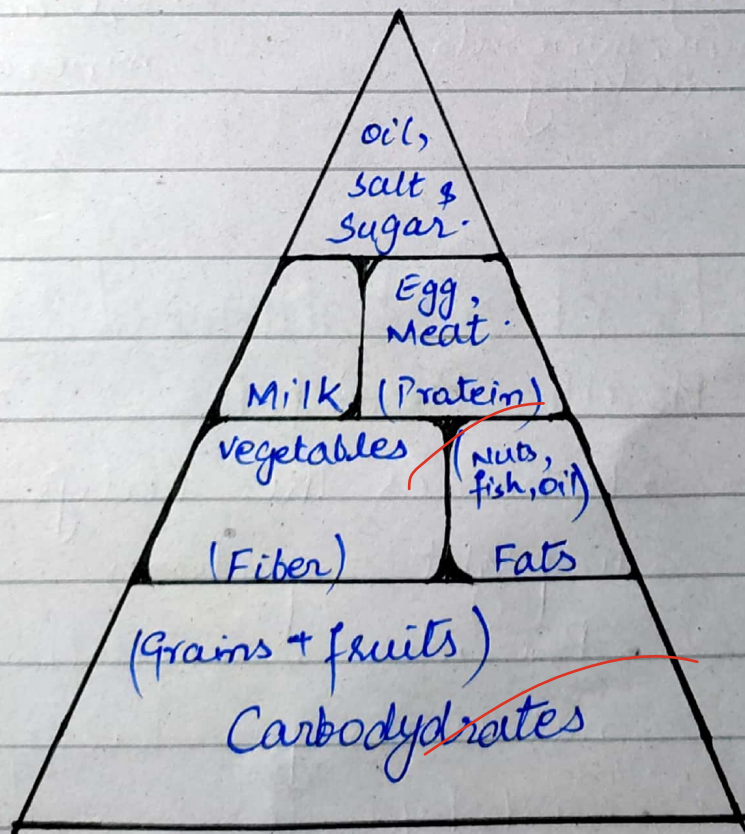 Oil,
Salt &
Sugar.
Milk
Egg,
Meat.
(Protein)
Vegetables
(Fiber)
(Nuts,
fish, oil)
Fats
(Grains + fruits)
Carbodydrates